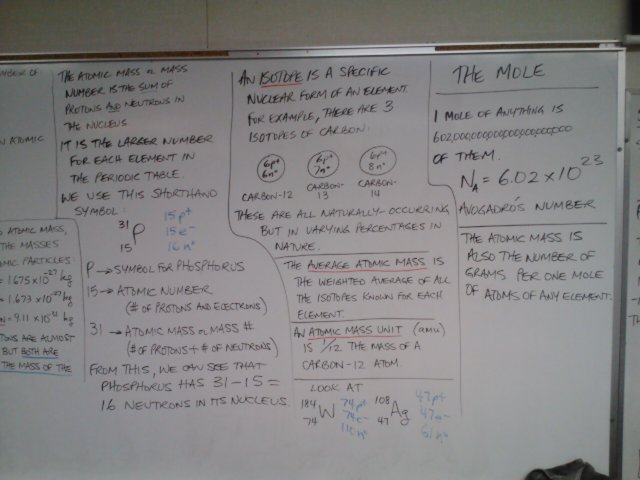 NUMBER OF
N ATOMIC
D ATOMIC MASS,
THE MASSES
OMIC PARTICLES:
= 1.675x10⁻²⁷ kg
= 1.673 x10⁻²⁷ kg
= 9.11 x10⁻³¹ kg
TONS ARE ALMOST
BUT BOTH ARE
THE MASS OF THE
THE ATOMIC MASS OR MASS
NUMBER IS THE SUM OF
PROTONS AND NEUTRONS IN
THE NUCLEUS
IT IS THE LARGER NUMBER
FOR EACH ELEMENT IN
THE PERIODIC TABLE.
WE USE THIS SHORTHAND
SYMBOL:
31
P
15
15p⁺
15e⁻
16n⁰
P → SYMBOL FOR PHOSPHORUS
15 → ATOMIC NUMBER
(# OF PROTONS AND ELECTRONS)
31 → ATOMIC MASS OR MASS #
(# OF PROTONS + # OF NEUTRONS)
FROM THIS, WE CAN SEE THAT
PHOSPHORUS HAS 31-15=
16 NEUTRONS IN ITS NUCLEUS.
AN ISOTOPE IS A SPECIFIC
NUCLEAR FORM OF AN ELEMENT.
FOR EXAMPLE, THERE ARE 3
ISOTOPES OF CARBON:
6p⁺ 6n⁰
6p⁺ 7n⁰
6p⁺ 8n⁰
CARBON-12
CARBON-13
CARBON-14
THESE ARE ALL NATURALLY-OCCURRING,
BUT IN VARYING PERCENTAGES IN
NATURE.
THE AVERAGE ATOMIC MASS IS
THE WEIGHTED AVERAGE OF ALL
THE ISOTOPES KNOWN FOR EACH
ELEMENT.
AN ATOMIC MASS UNIT (amu)
IS 1/12 THE MASS OF A
CARBON-12 ATOM.
LOOK AT
184
W
74
74p⁺
74e⁻
110n⁰
108
Ag
47
47p⁺
47e⁻
61n⁰
THE MOLE
1 MOLE OF ANYTHING IS
602,000,000,000,000,000,000,000
OF THEM.
N_A = 6.02 x 10²³
AVOGADRO'S NUMBER
THE ATOMIC MASS IS
ALSO THE NUMBER OF
GRAMS PER ONE MOLE
OF ATOMS OF ANY ELEMENT.